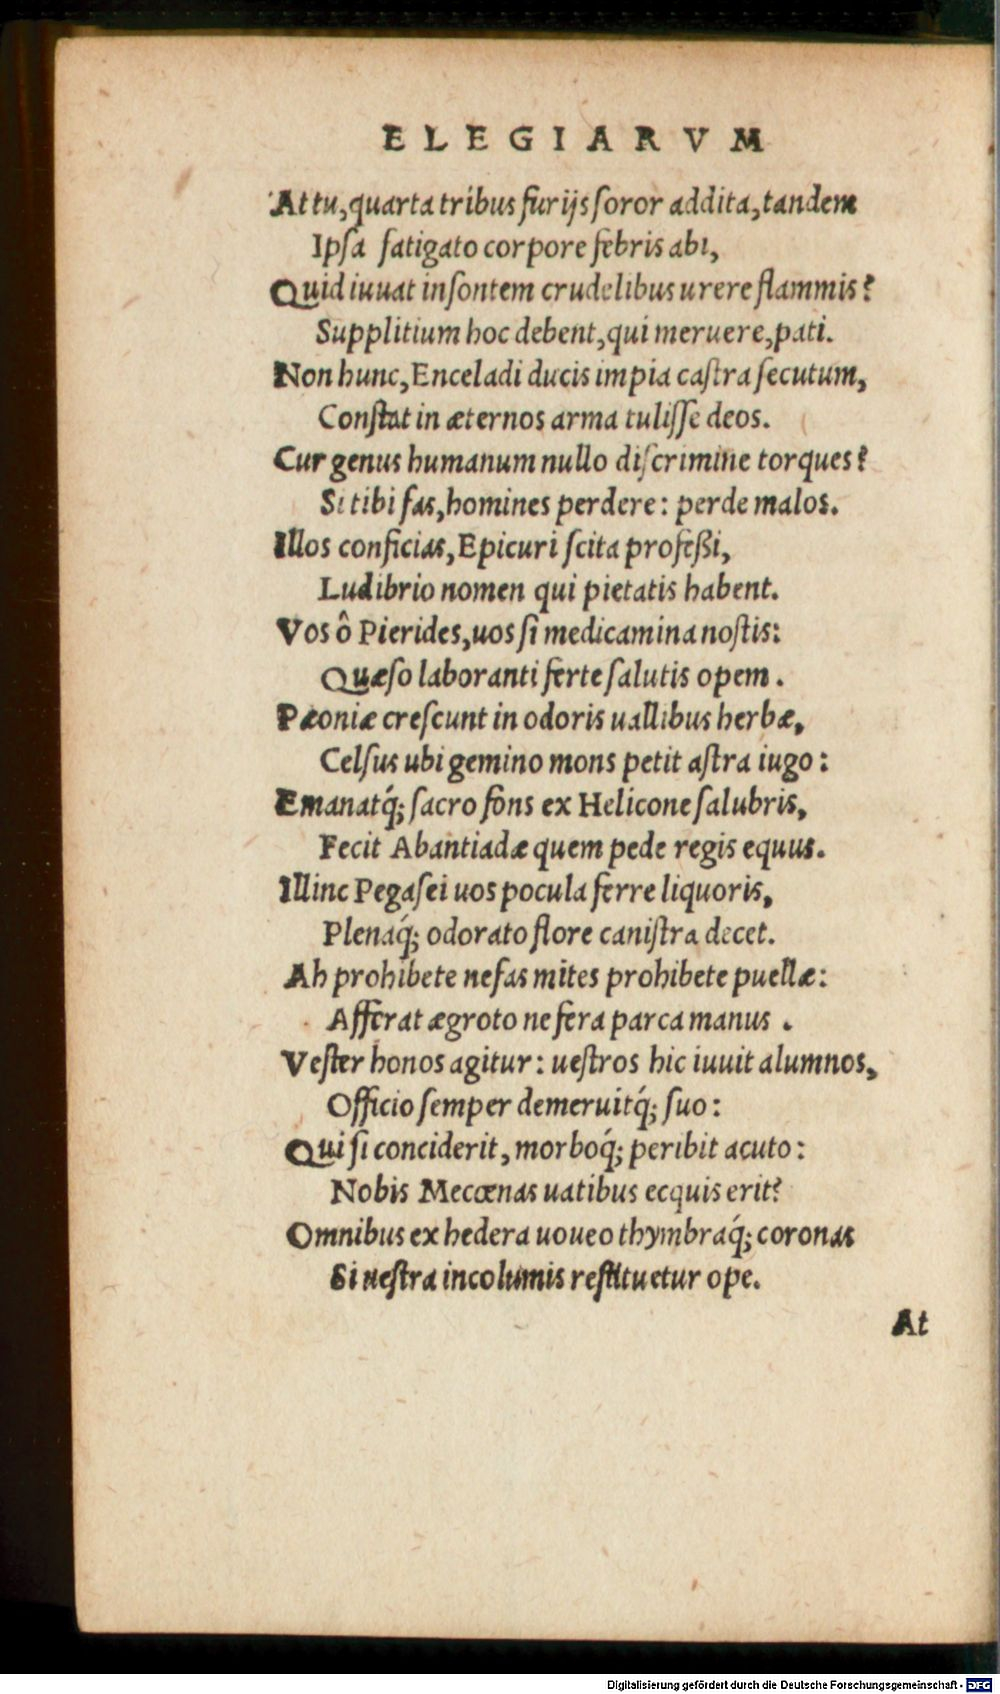 ELEGIARVM
At tu, quarta tribus furijs soror addita, tandem
Ipsa fatigato corpore febris abi,
Quid iuuat insontem crudelibus urere flammis?
Supplitium hoc debent, qui meruere, pati.
Non hunc, Enceladi ducis impia castra secutum,
Constat in æternos arma tulisse deos.
Cur genus humanum nullo discrimine torques?
Si tibi fas, homines perdere: perde malos.
Illos conficias, Epicuri scita profeßi,
Ludibrio nomen qui pietatis habent.
Vos ô Pierides, uos si medicamina nostis:
Quæso laboranti ferte salutis opem.
Pæoniæ crescunt in odoris uallibus herbæ,
Celsus ubi gemino mons petit astra iugo:
Emanatq́; sacro fons ex Helicone salubris,
Fecit Abantiadæ quem pede regis equus.
Illinc Pegasei uos pocula ferre liquoris,
Plenaq́; odorato flore canistra decet.
Ah prohibete nefas mites prohibete puellæ:
Afferat ægroto ne fera parca manus.
Vester honos agitur: uestros hic iuuit alumnos,
Officio semper demeruitq́; suo:
Qui si conciderit, morboq́; peribit acuto:
Nobis Mecœnas uatibus ecquis erit?
Omnibus ex hedera uoueo thymbraq́; coronas
Si uestra incolumis restituetur ope.
At
Digitalisierung gefördert durch die Deutsche Forschungsgemeinschaft - DFG